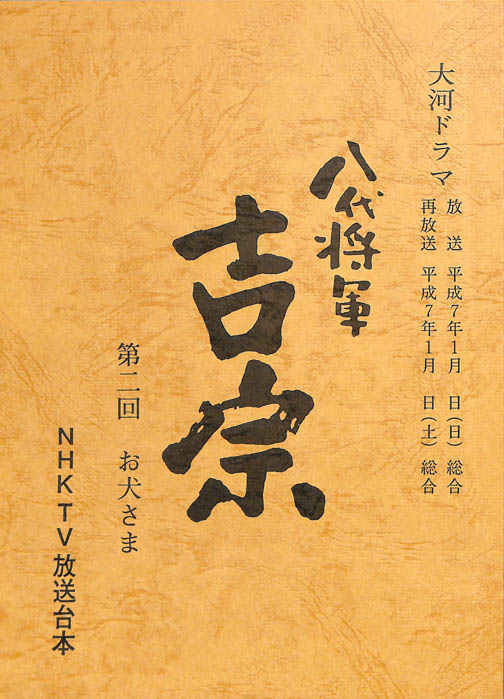 大河ドラマ
放送 平成7年1月 日(日) 総合
再放送 平成7年1月 日(土) 総合
八代将軍
吉宗
第二回 お犬さま
NHKTV放送台本